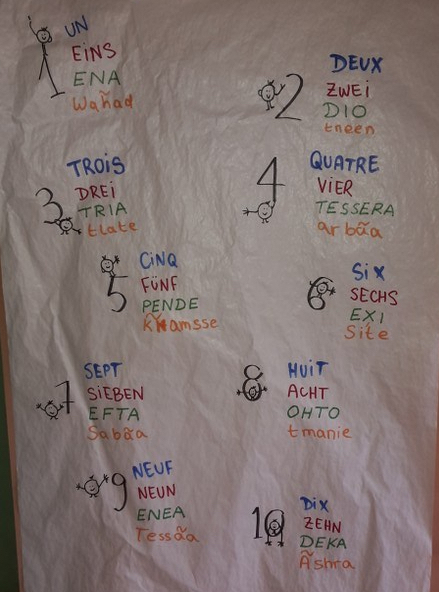 1
UN
EINS
ENA
Wañad
2
DEUX
ZWEI
DIO
tneen
3
TROIS
DREI
TRIA
tlate
4
QUATRE
VIER
TESSERA
arbãa
5
CINQ
FÜNF
PENDE
khamsse
6
SIX
SECHS
EXI
Site
7
SEPT
SIEBEN
EFTA
Sabãa
8
HUIT
ACHT
OHTO
tmanie
9
NEUF
NEUN
ENEA
Tessãa
10
DIX
ZEHN
DEKA
Ãshra